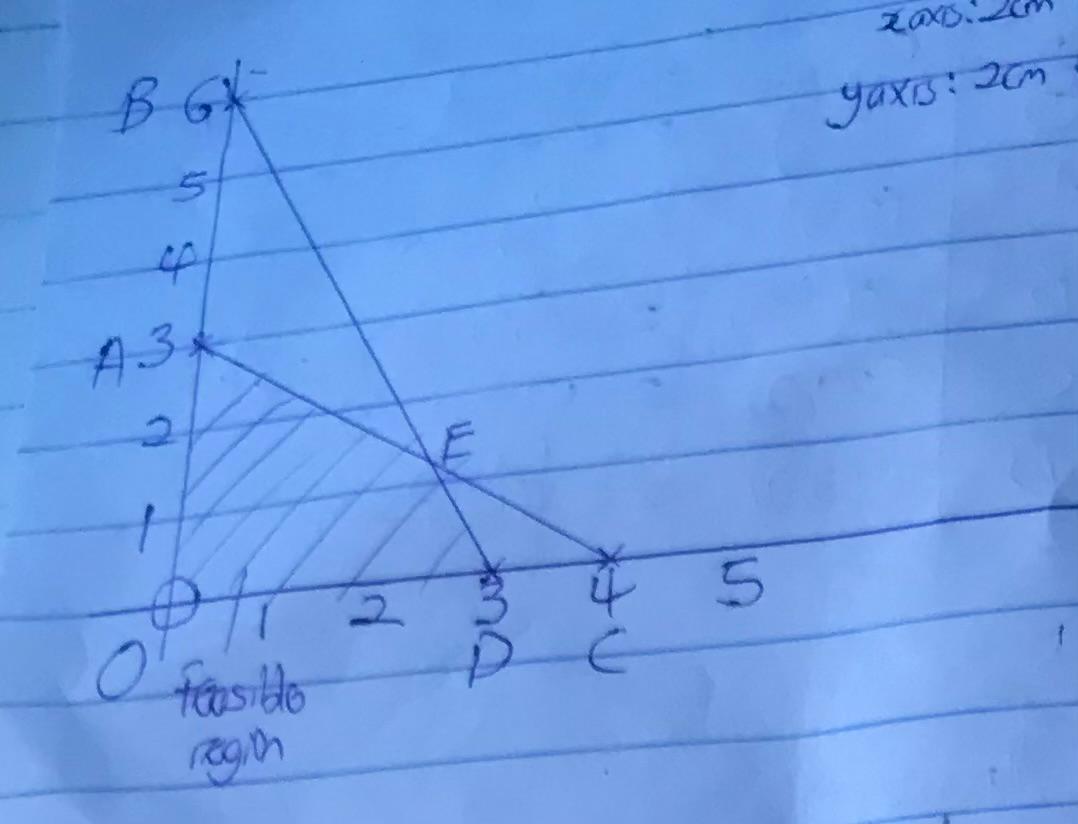 x axis: 2cm
y axis: 2cm
B 6
5
4
A 3
2
E
1
1 2 3 4 5
O D C
feasible
region